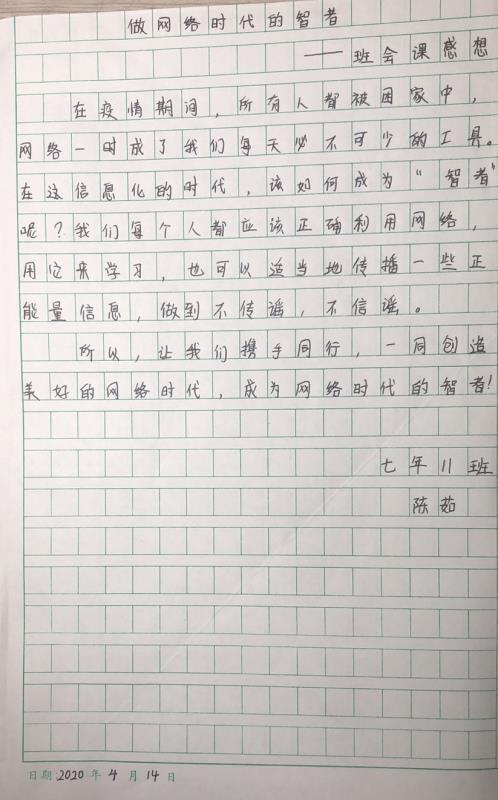 做网络时代的智者
——班会课感想
在疫情期间，所有人都被困家中，
网络一时成了我们每天必不可少的工具。
在这信息化的时代，该如何成为“智者”
呢？我们每个人都应该正确利用网络，
用它来学习，也可以适当地传播一些正
能量信息，做到不传谣，不信谣。
所以，让我们携手同行，一同创造
美好的网络时代，成为网络时代的智者！
七年11班
陈茹
日期：2020年4月14日